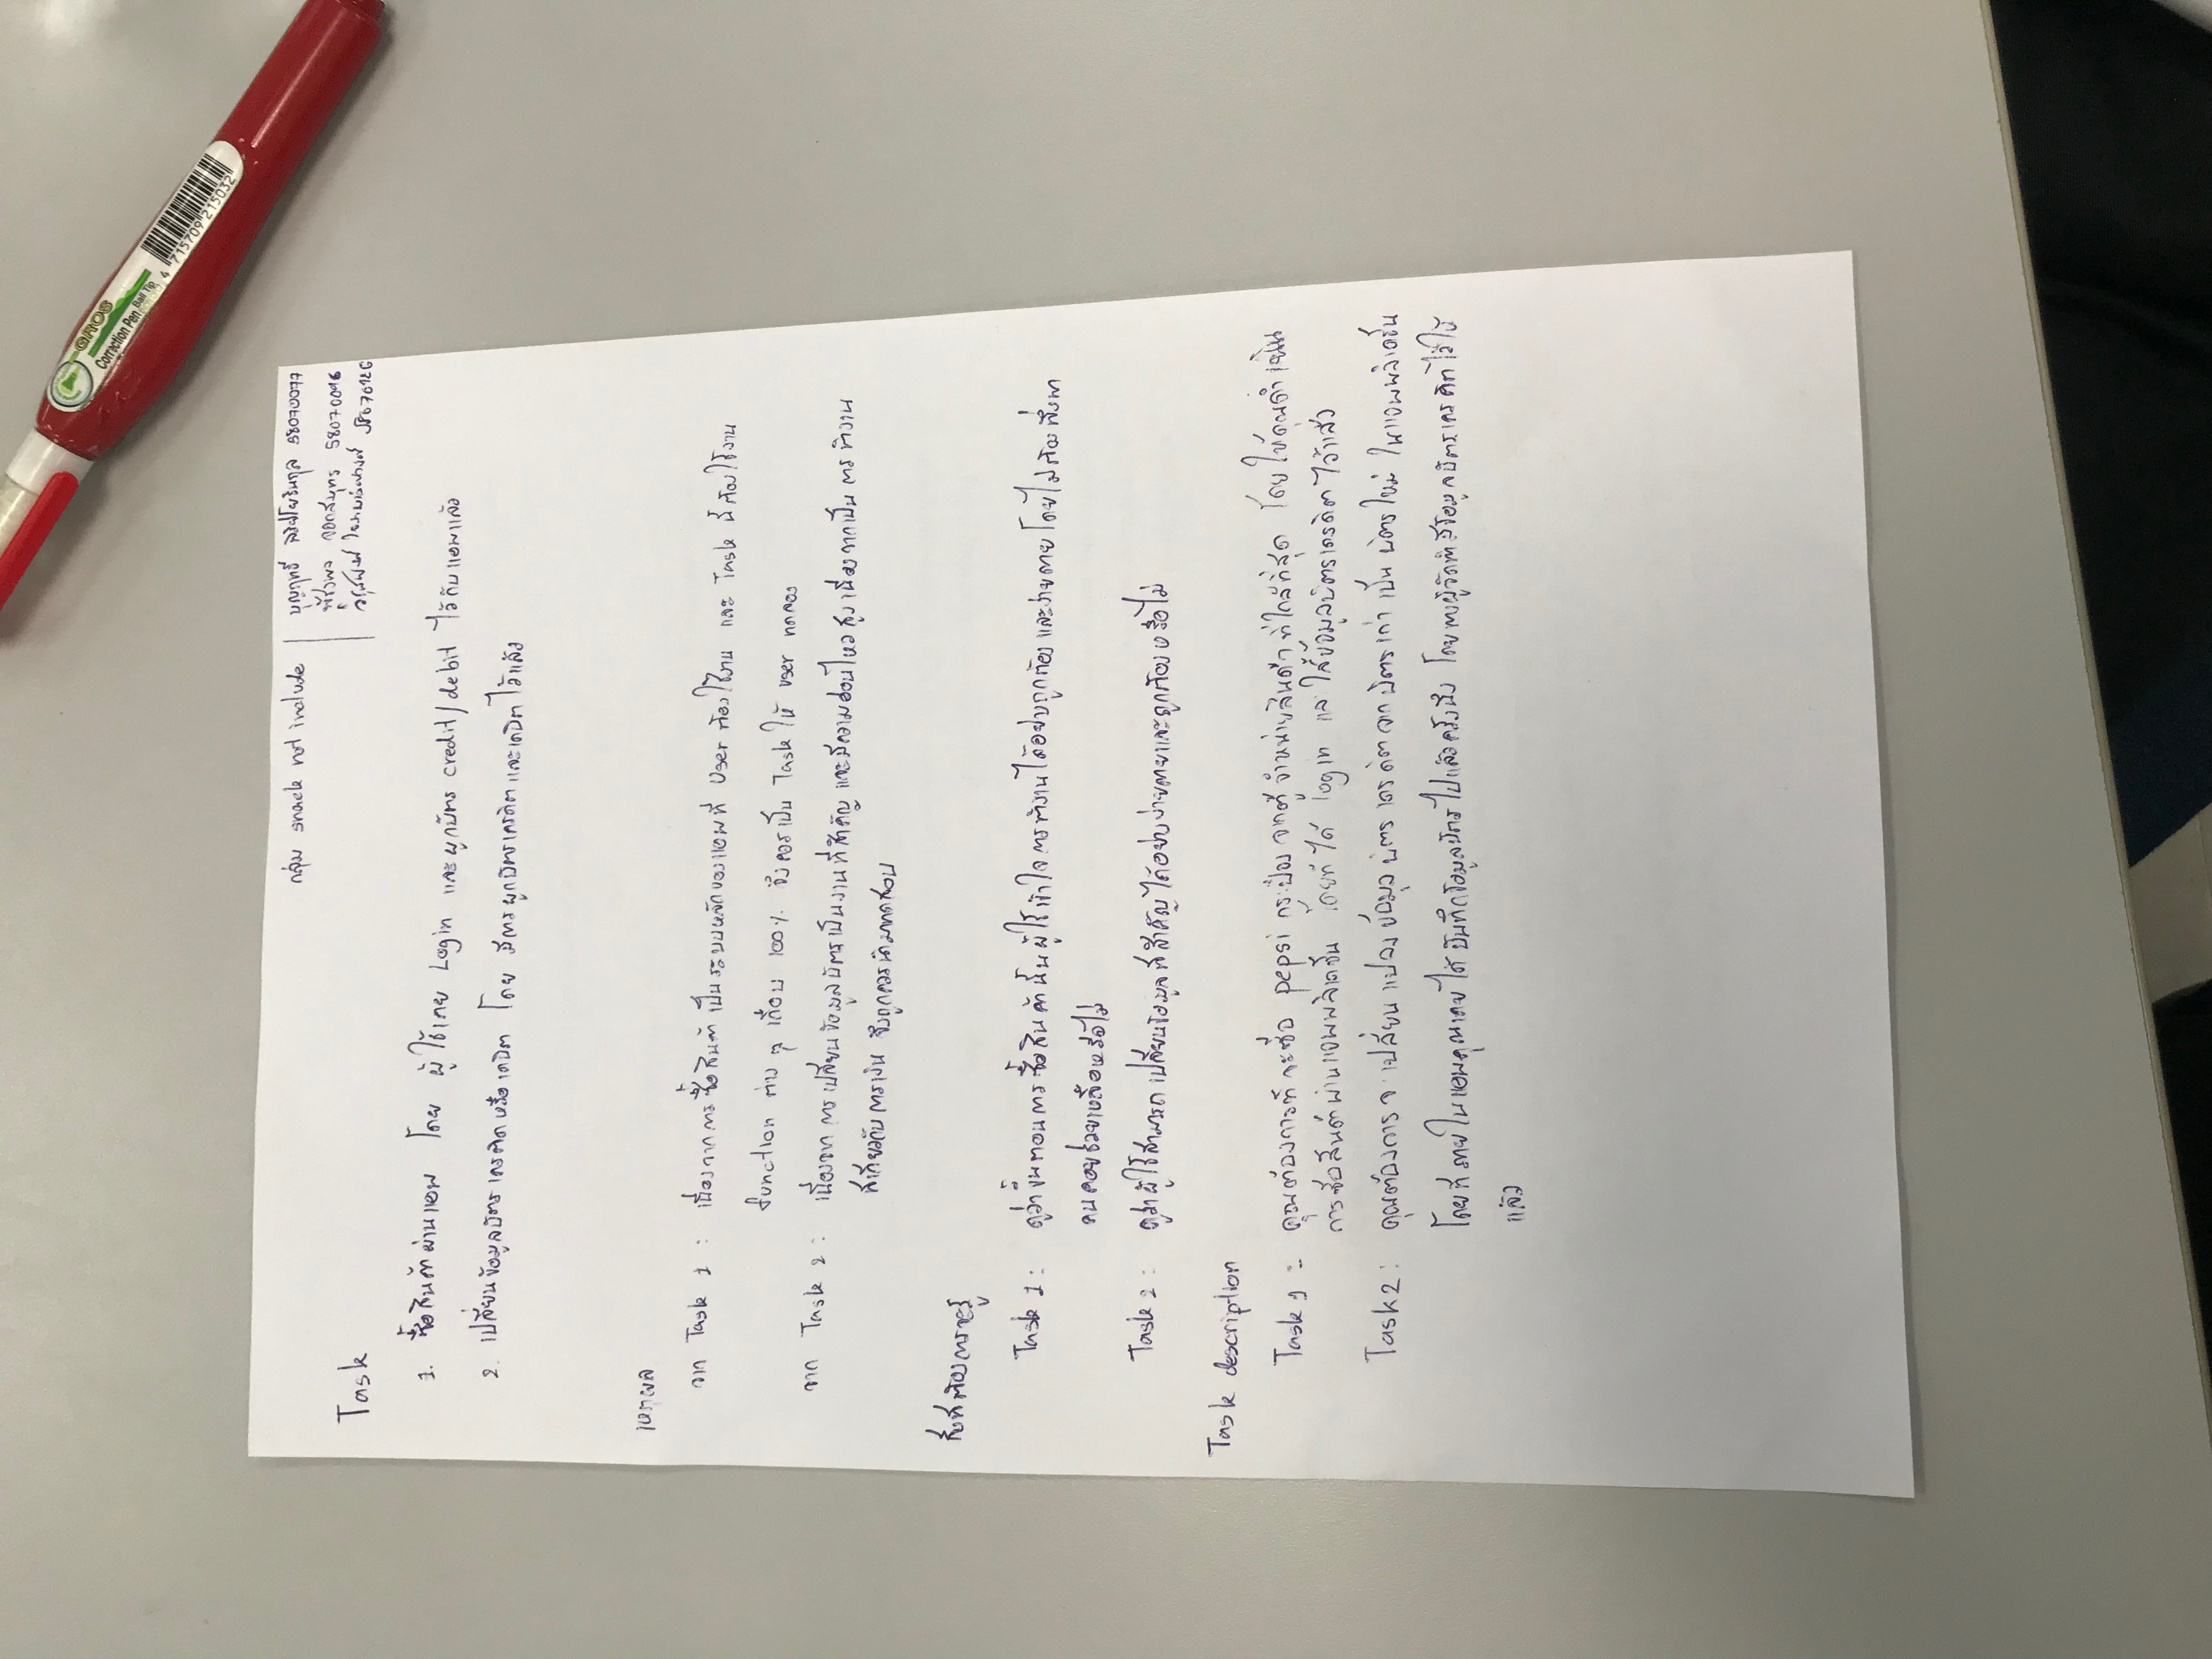 GROS
Correction Pen
Ball Tip
4 715709 215032
กลุ่ม snack not include
58070077
58070096
Task
1. ซื้อสินค้าผ่านแอพ โดย ผู้ใช้เคย Login และผูกบัตร credit/debit ไว้กับแอพแล้ว
2. เปลี่ยนข้อมูลบัตรเครดิตหรือเดบิต โดย มีการผูกบัตรเครดิตและเดบิตไว้แล้ว
เหตุผล
จาก Task 1 : เนื่องจากการซื้อสินค้าเป็นระบบหลักของแอพที่ User ต้องใช้งาน และ Task นี้ต้องใช้งาน
function ต่าง ๆ เกือบ 100% จึงควรเป็น Task ให้ user ทดลอง
จาก Task 2 : เนื่องจากการเปลี่ยนข้อมูลบัตรเป็นงานที่สำคัญ และมีความอ่อนไหวสูงเนื่องจากเป็นการทำงาน
ที่เกี่ยวกับการเงิน จึงถูกควรนำมาทดสอบ
สิ่งที่ต้องการจะรู้
Task 1 : ดูว่าขั้นตอนการซื้อสินค้านั้นผู้ใช้เข้าใจการทำงานได้อย่างถูกต้อง และง่ายดายโดยไม่ต้องพึ่งพา
คนคอยช่วยเหลือหรือไม่
Task 2 : ดูว่าผู้ใช้สามารถเปลี่ยนข้อมูลที่สำคัญได้อย่างง่ายดายและถูกต้องหรือไม่
Task description
Task 1 : คุณต้องการที่จะซื้อ pepsi กระป๋อง จากตู้จำหน่ายสินค้าที่ใกล้ที่สุด โดยให้คุณดำเนิน
การซื้อสินค้าผ่านแอพพลิเคชั่น โดยที่ได้ login และใส่ข้อมูลบัตรเครดิตไว้แล้ว
Task 2 : คุณต้องการจะเปลี่ยนแปลงข้อมูลบัตรเครดิตจากบัตรเก่าเป็นบัตรใหม่ ในแอพพลิเคชั่น
โดยที่ภายในแอพคุณเคยได้บันทึกข้อมูลบัตรไปแล้วครั้งนึง โดยทางผู้จัดทำมีข้อมูลบัตรเครดิตไว้ให้
แล้ว